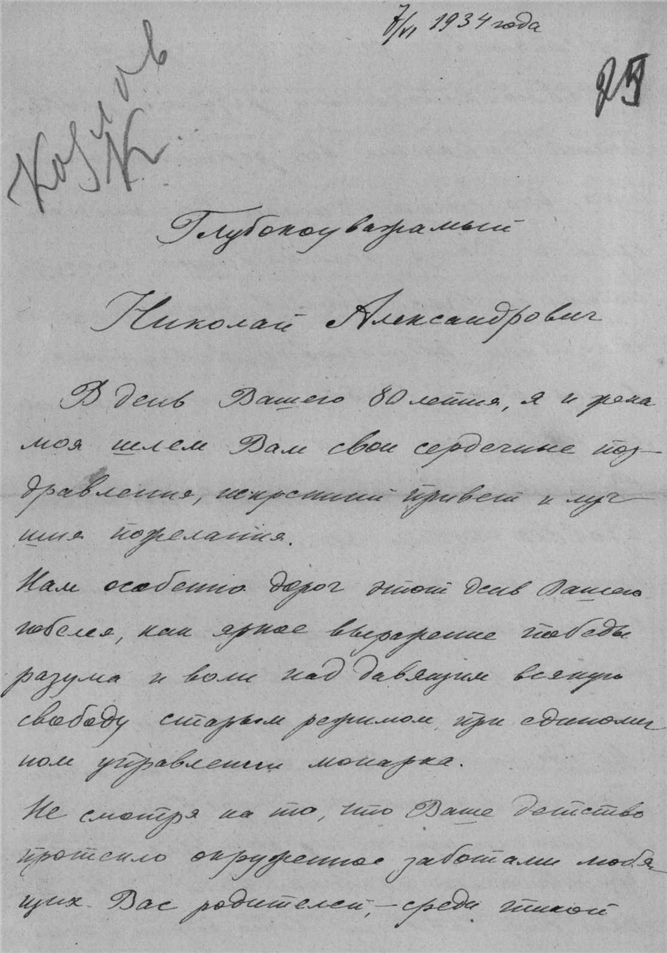 7/VI 1934 года
25
Козлов
К.
Глубокоуважамый
Николай Александрович
В день Вашего 80 летия, я и жена
моя шлем Вам свои сердечные поз-
дравления, искренний привет и луч-
шия пожелания.
Нам особенно дорог этот день Вашего
юбелея, как яркое выражение победы
разума и воли над давящим всякую
свободу старым режимом, при единолич
ном управлении монарха.
Не смотря на то, что Ваше детство
протекло окруженное заботами любя-
щих Вас родителей, – среди тихой